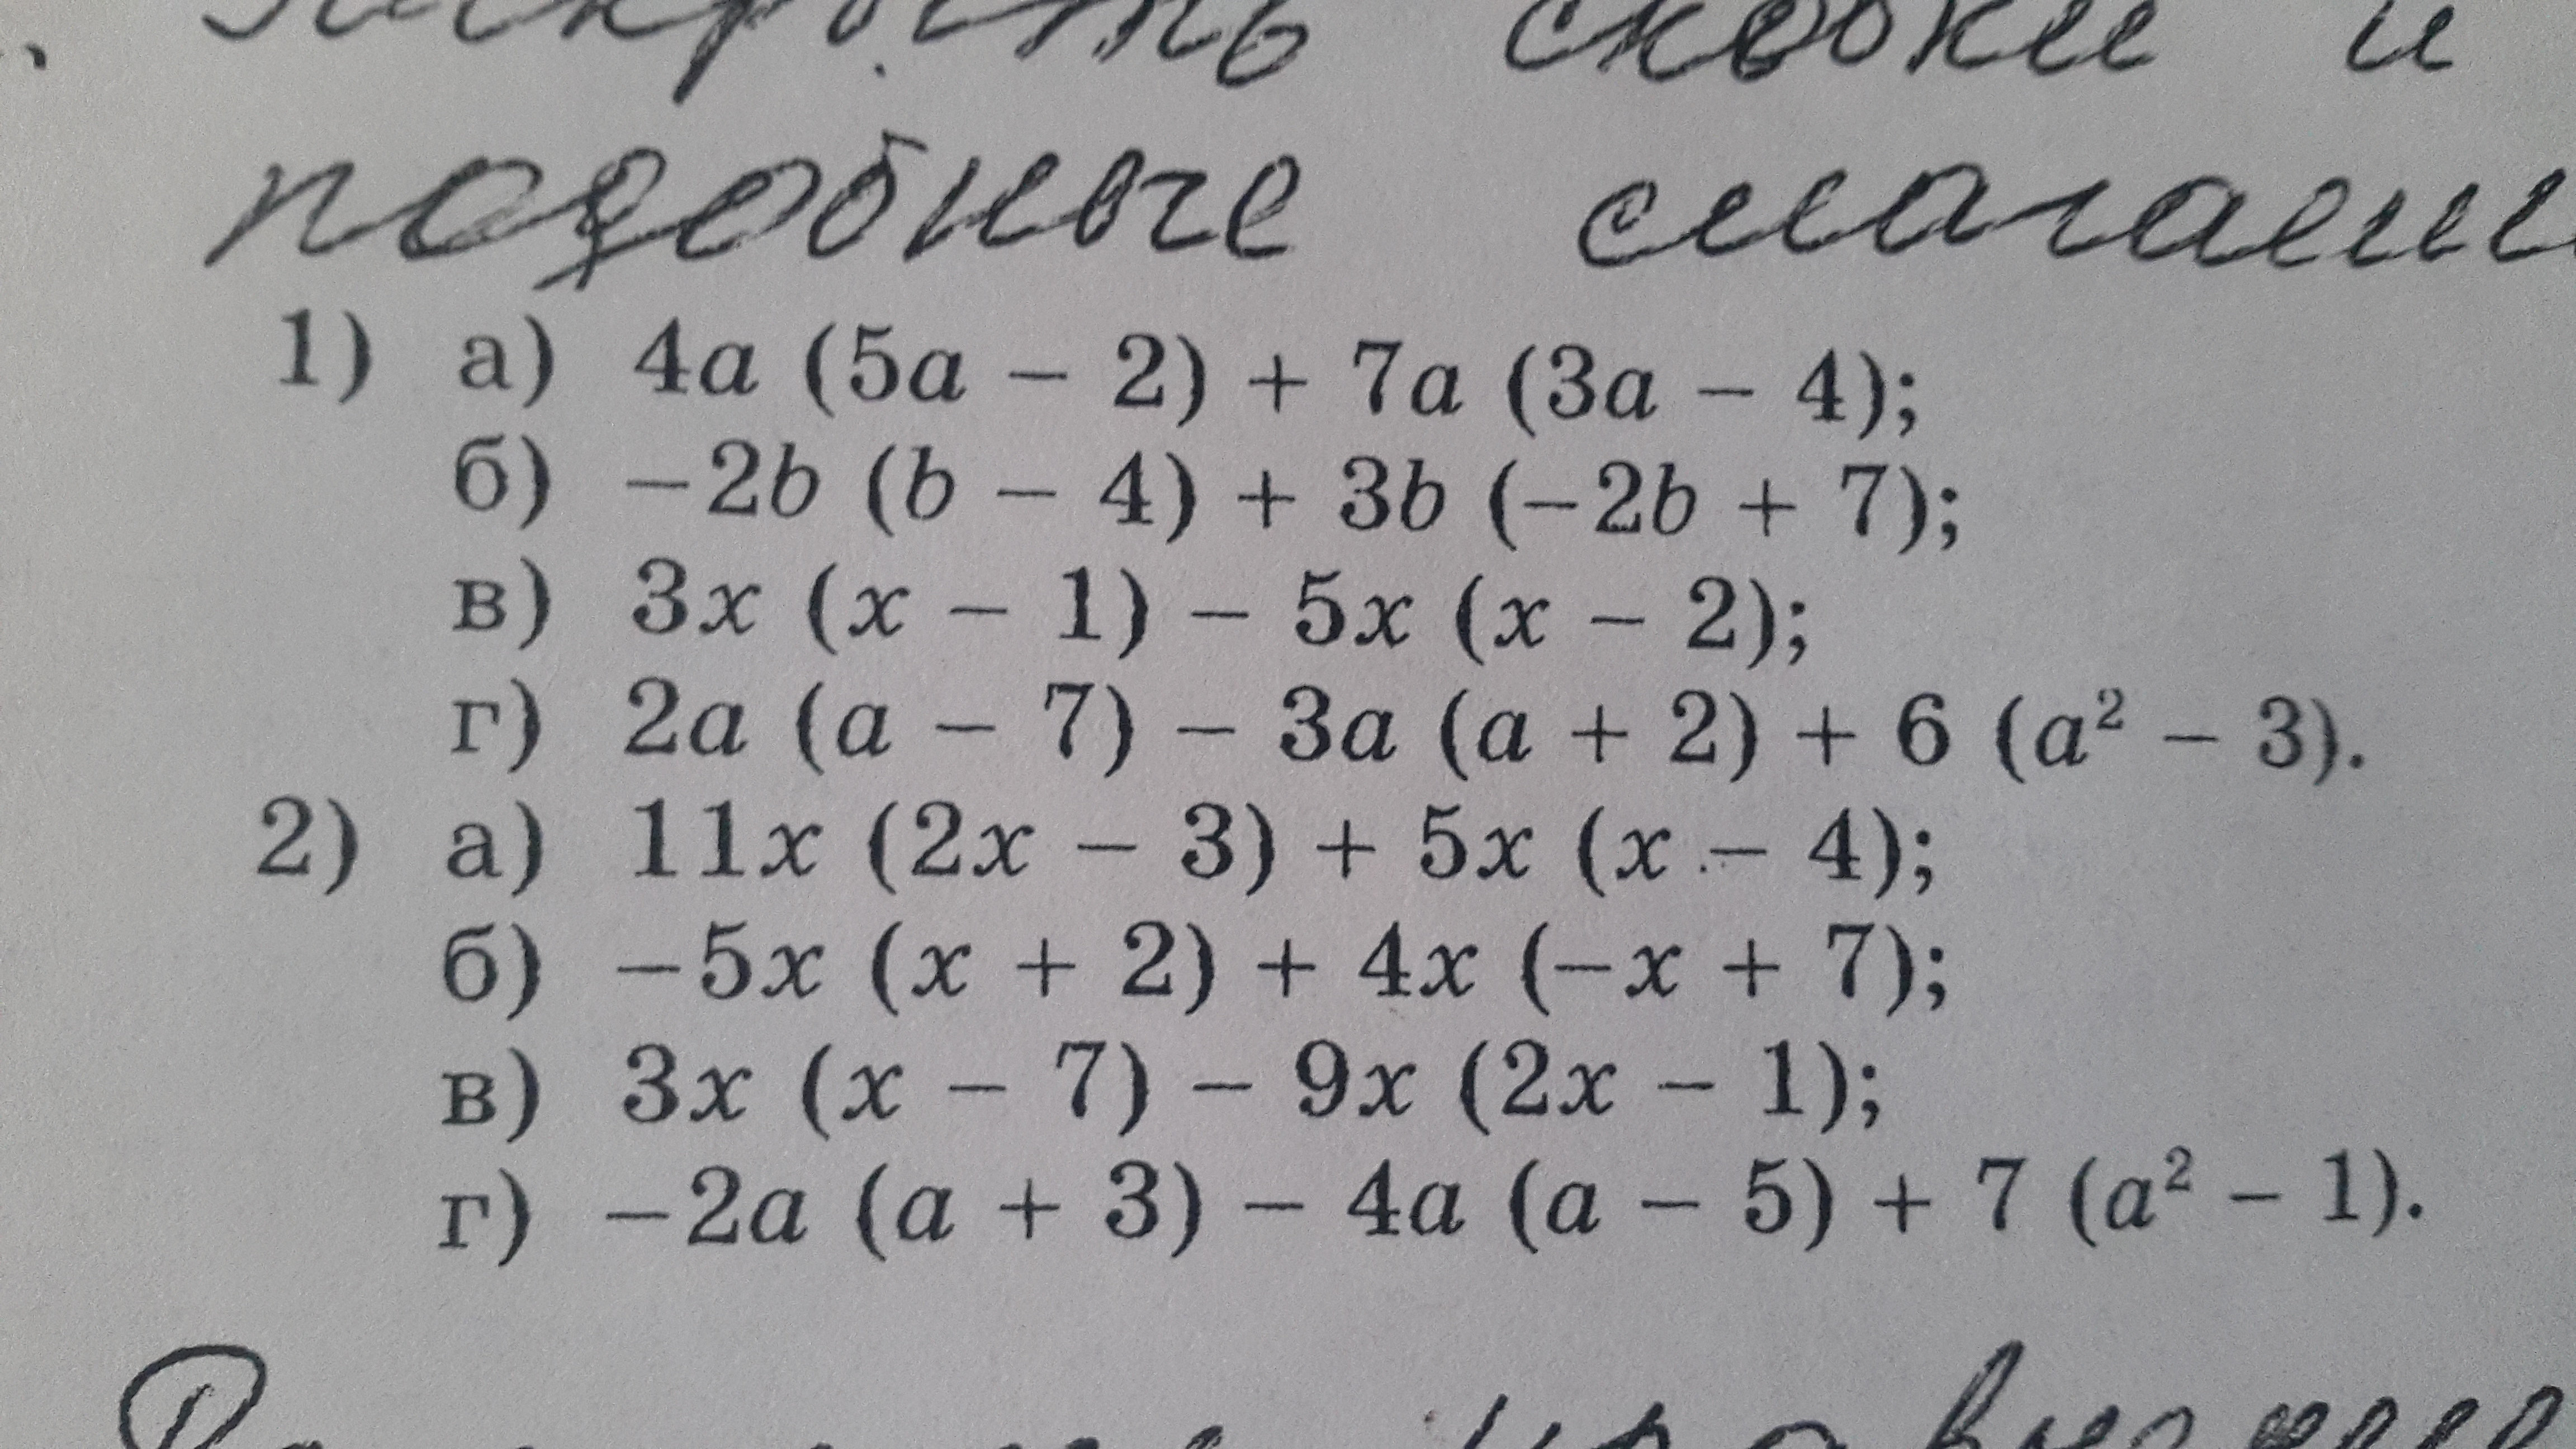 Раскрыть скобки и
подобные слагаем
1) а) 4a (5a − 2) + 7a (3a − 4);
б) −2b (b − 4) + 3b (−2b + 7);
в) 3x (x − 1) − 5x (x − 2);
г) 2a (a − 7) − 3a (a + 2) + 6 (a² − 3).
2) а) 11x (2x − 3) + 5x (x − 4);
б) −5x (x + 2) + 4x (−x + 7);
в) 3x (x − 7) − 9x (2x − 1);
г) −2a (a + 3) − 4a (a − 5) + 7 (a² − 1).